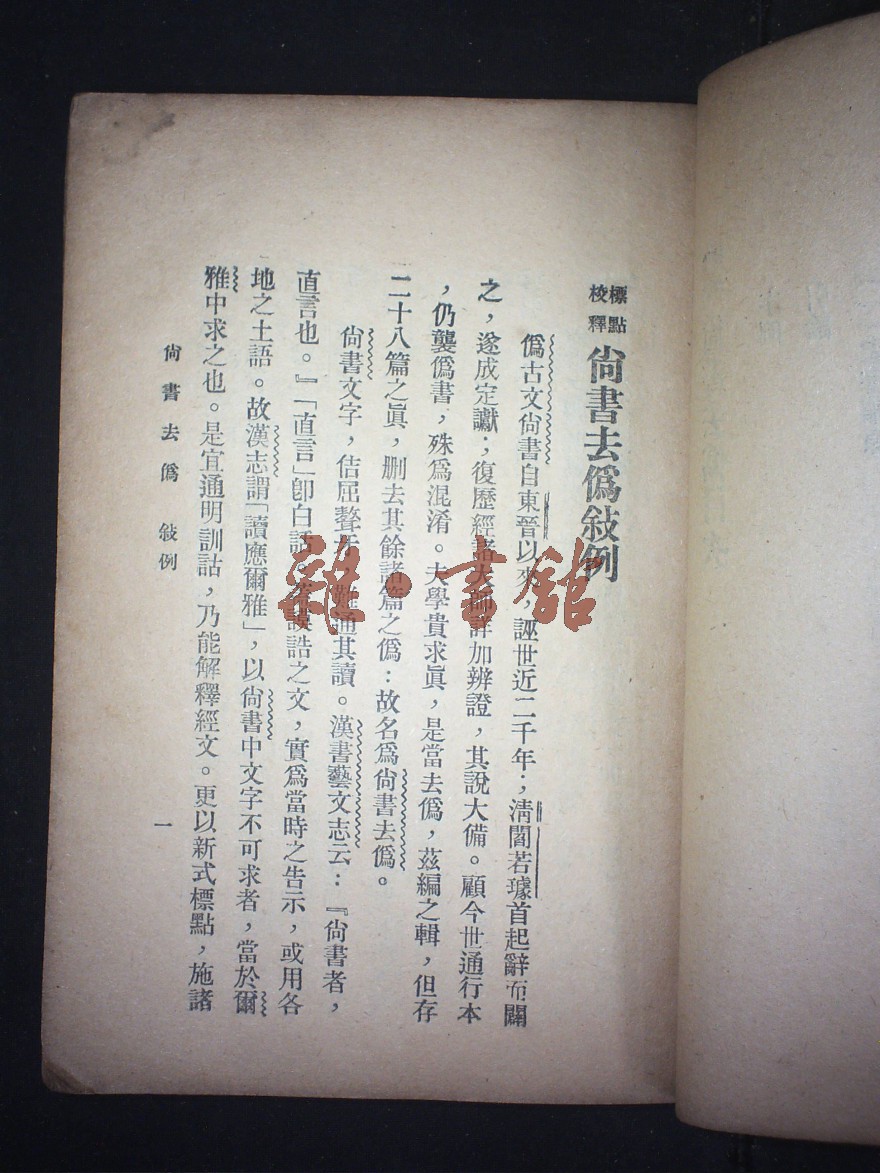 標點
校釋
尙書去僞敍例
僞古文尙書自東晉以來，誣世近二千年；淸閻若璩首起辭而闢
之，遂成定讞；復歷經諸大師詳加辨證，其說大備。顧今世通行本
，仍襲僞書，殊爲混淆。夫學貴求眞，是當去僞，茲編之輯，但存
二十八篇之眞，刪去其餘諸篇之僞：故名爲尙書去僞。
尙書文字，佶屈聱牙，難通其讀。漢書藝文志云：『尙書者，
直言也。』「直言」卽白話。誥之文，實爲當時之告示，或用各
地之土語。故漢志謂「讀應爾雅」，以尙書中文字不可求者，當於爾
雅中求之也。是宜通明訓詁，乃能解釋經文。更以新式標點，施諸
尙書去僞 敍例
一
雜·書館